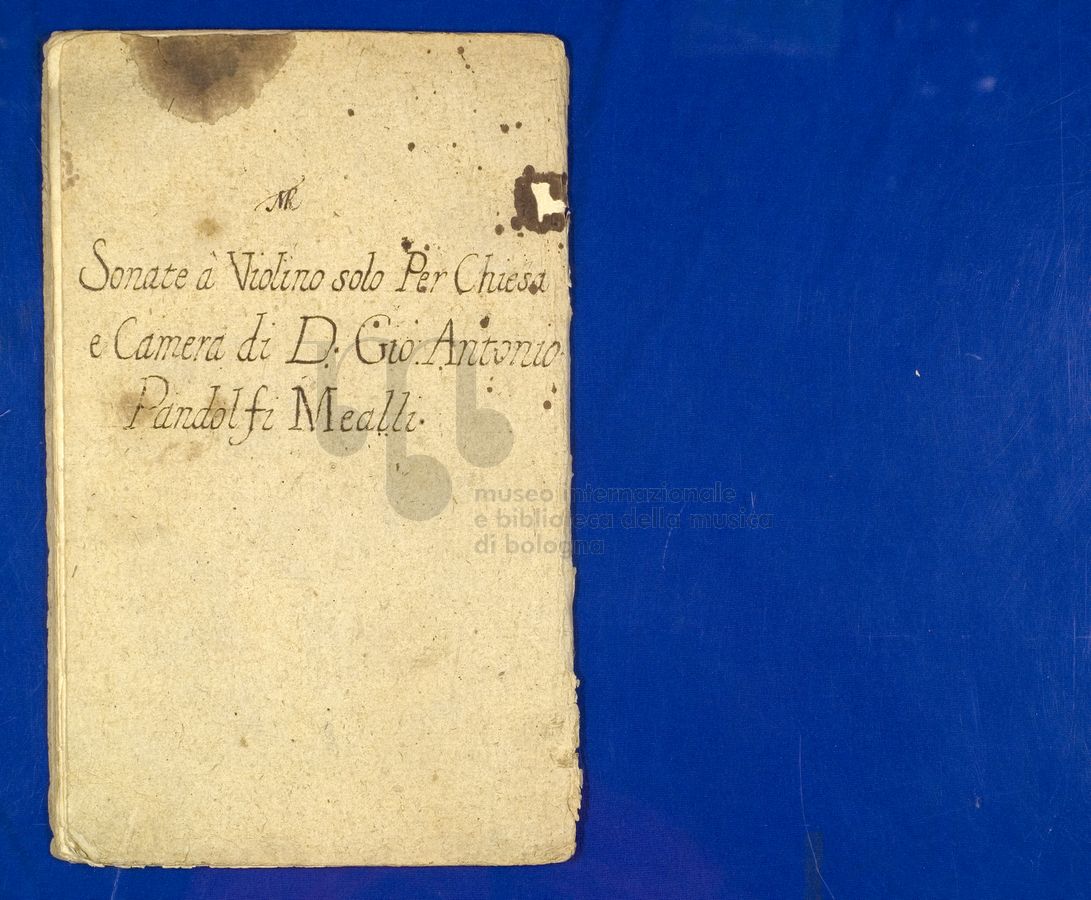 Sonate à Violino solo Per Chiesa
e Camera di D: Gio: Antonio
Pandolfi Mealli.
museo internazionale
e biblioteca della musica
di bologna